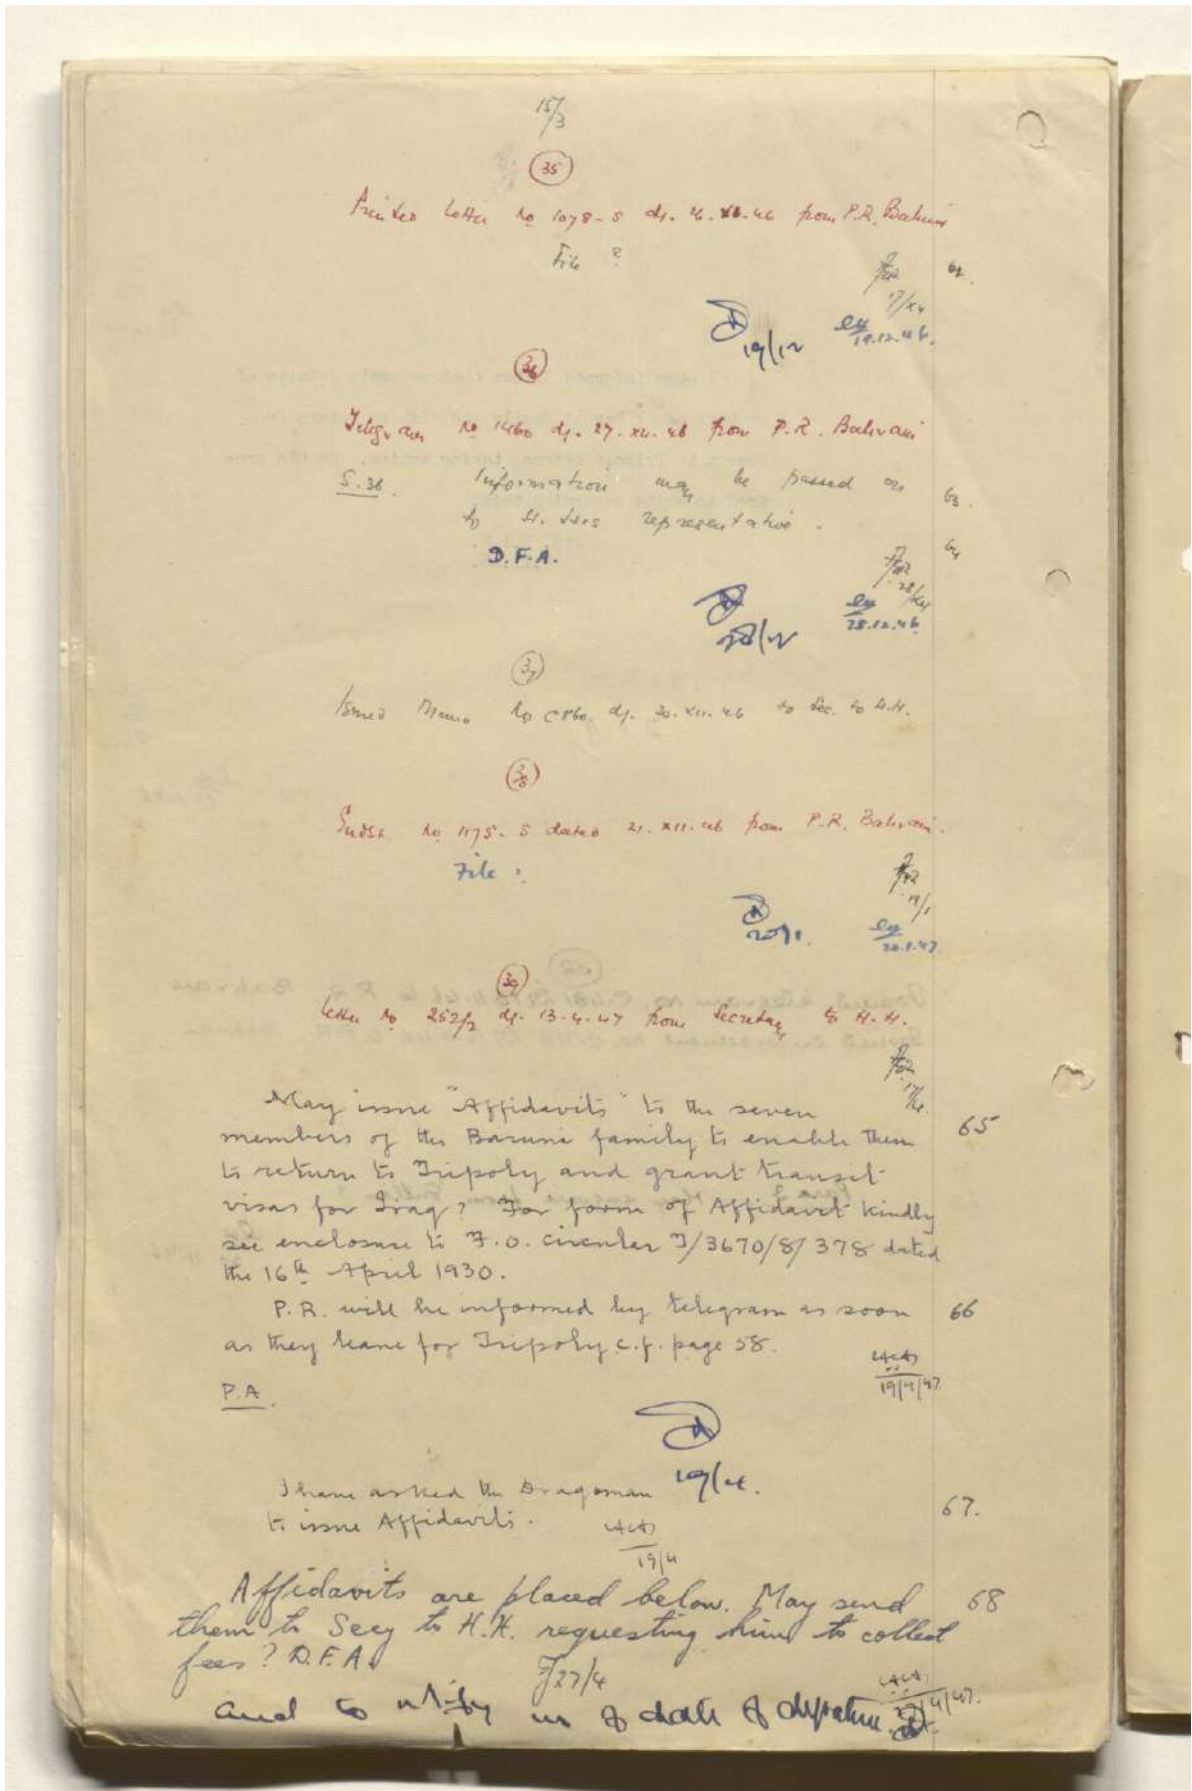 15/3
35
Printed letter No 1078-S dt. 26.XI.46 from P.R. Bahrain
File ?
62.
17/XII
19/12
19.12.46.
36
Telegram No 1460 dt. 27.XII.46 from P.R. Bahrain
S.36. Information may be passed on
63.
to H.H's representative.
D.F.A.
64
28/XII
28/12
28.12.46
37
Issued Memo No C860 dt. 30.XII.46 to Sec. to H.H.
38
Endst. No 1175-S dated 21.XII.46 from P.R. Bahrain.
File ?
19/1
20/1.
20.1.47
39
Letter No 252/2 dt. 13-4-47 from Secretary to H.H.
17/4.
May issue "Affidavits" to the seven
65
members of the Baruni family to enable them
to return to Tripoly and grant transit
visas for Iraq? For form of Affidavit kindly
see enclosure to F.O. circular T/3670/8/378 dated
the 16th April 1930.
P.R. will be informed by telegram as soon
66
as they leave for Tripoly c.f. page 58.
19/4/47
P.A.
19/4.
I have asked the Dragoman
to issue Affidavits.
67.
19/4
Affidavits are placed below. May send
68
them to Secy to H.H. requesting him to collect
fees? D.F.A.
27/4
and to notify us of date of departure.